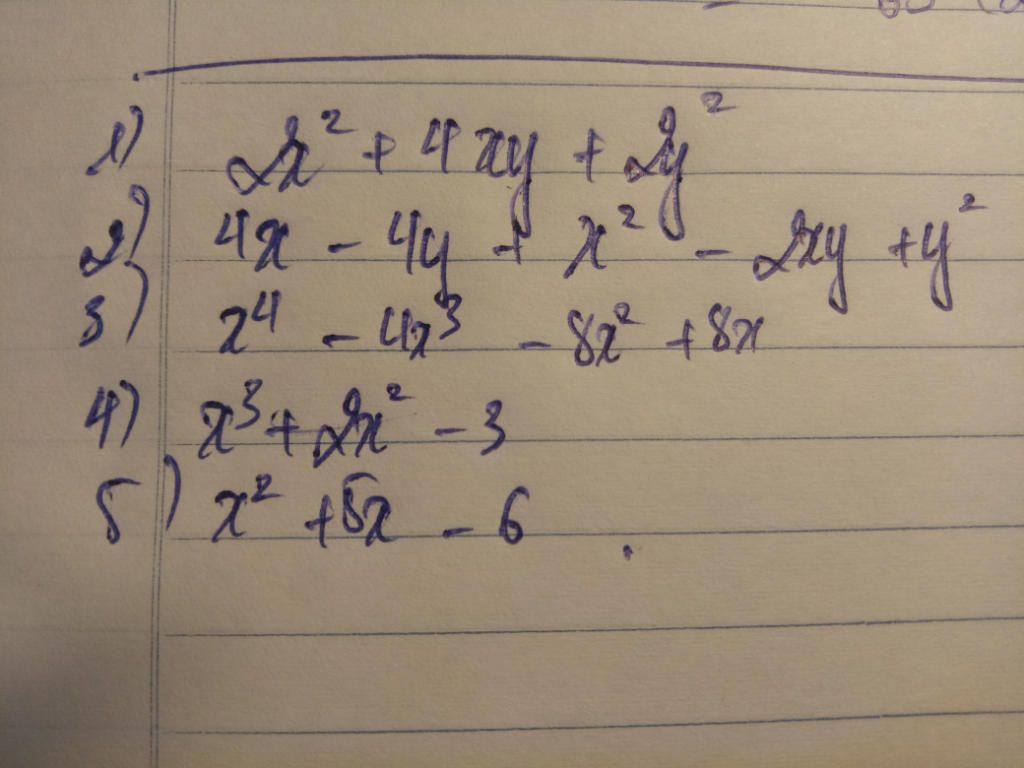 1) 2x² + 4xy + 2y²
2) 4x - 4y + x² - 2xy + y²
3) x⁴ - 4x³ - 8x² + 8x
4) x³ + 2x² - 3
5) x² + 5x - 6